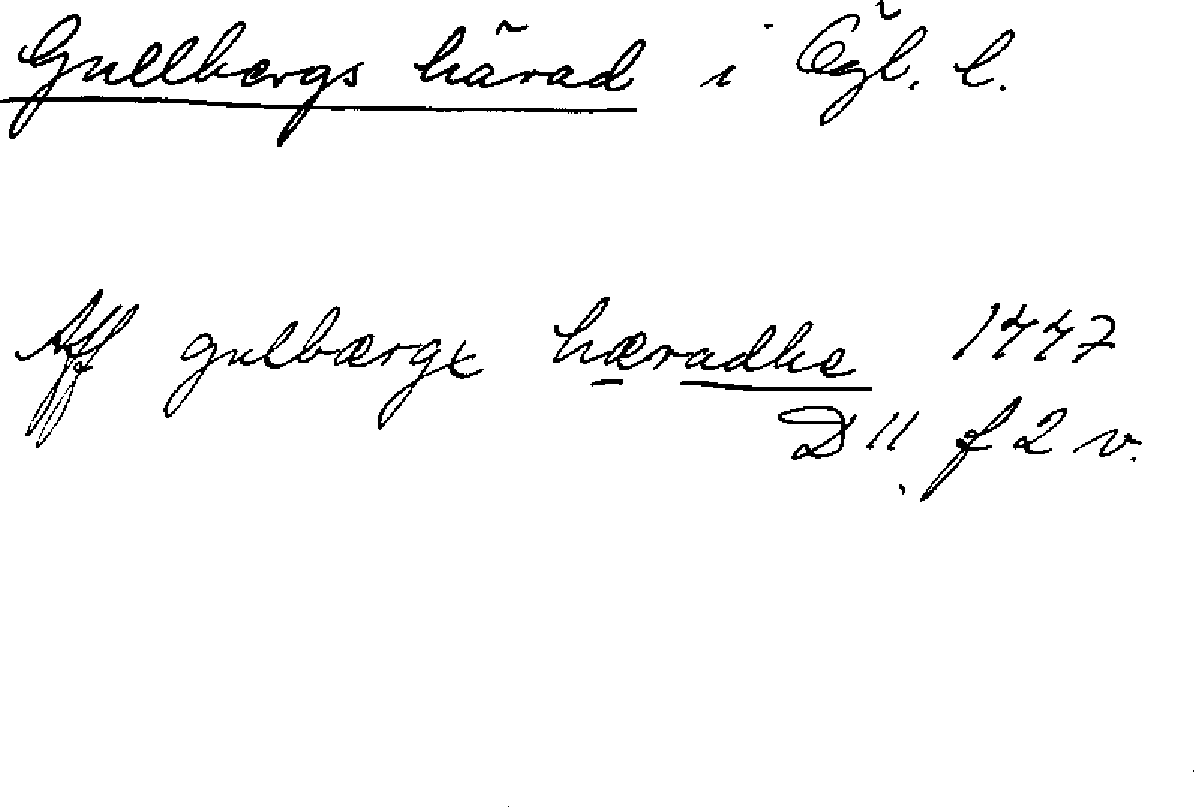 Gullbergs härad i Ögl. l.
Aff gulbærgx hæradhe 1447
D 11 f 2 v.